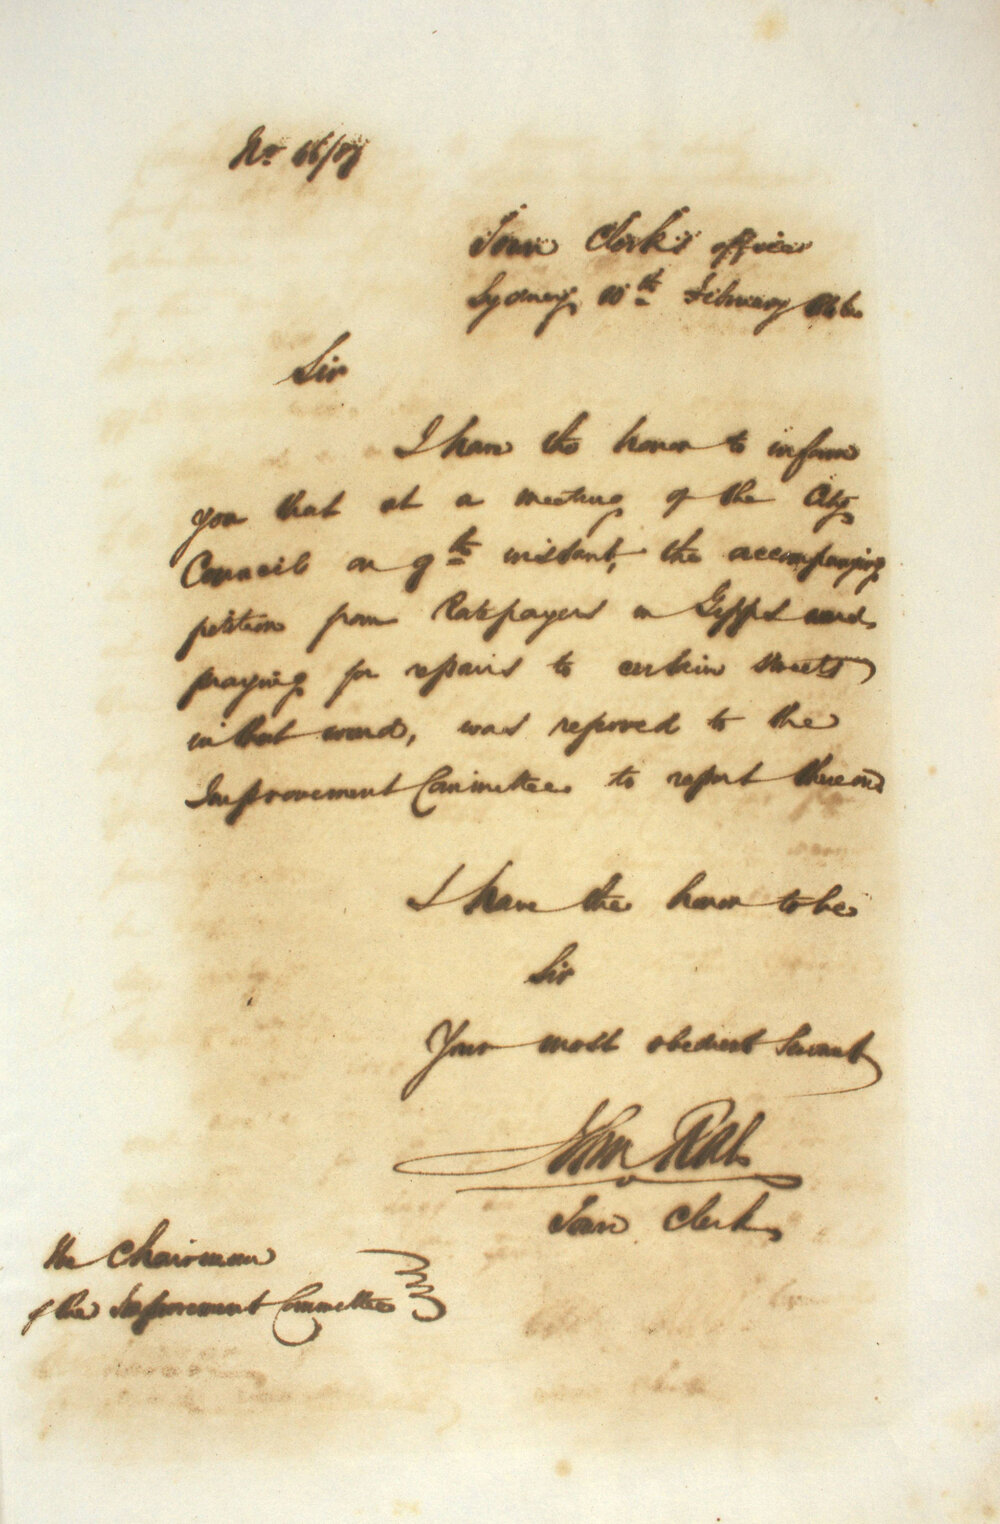 No. 66/87
Town Clerk's office
Sydney, 10th February 1866
Sir
I have the honor to inform
you that at a meeting of the City
Council on 9th instant, the accompanying
petition from Ratepayers in Gipps ward
praying for repairs to certain streets
in that ward, was referred to the
Improvement Committee to report thereon
I have the honor to be
Sir
Your most obedient Servant
Town Clerk
The Chairman
of the Improvement Committee